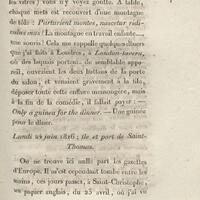 les vitres) vous n'y voyez goutte. A table,
chaque mets est recouvert d'une montagne
de tôle : Parturient montes, nascetur ridi-
culus mus! La montagne en travail enfante...
une souris! Cela me rappelle quelques dîners
que j'ai faits à Londres, à London-tavern,
où des laquais portant
du salon, et venaient gravement à la file,
déposer toute cette enfilure
à la fin de la comédie, il fallait payer : —
Only a guinea for the dinner. — Une guinée
pour le dîner.
Lundi 24 juin 1826; île et port de Saint-
Thomas.
On ne trouve ici nulle part les gazettes
d'Europe. Il m'est cependant tombé entre les
mains, ces jours passés, à Saint-Christophe,
un papier anglais, du 25 avril, où j'ai vu